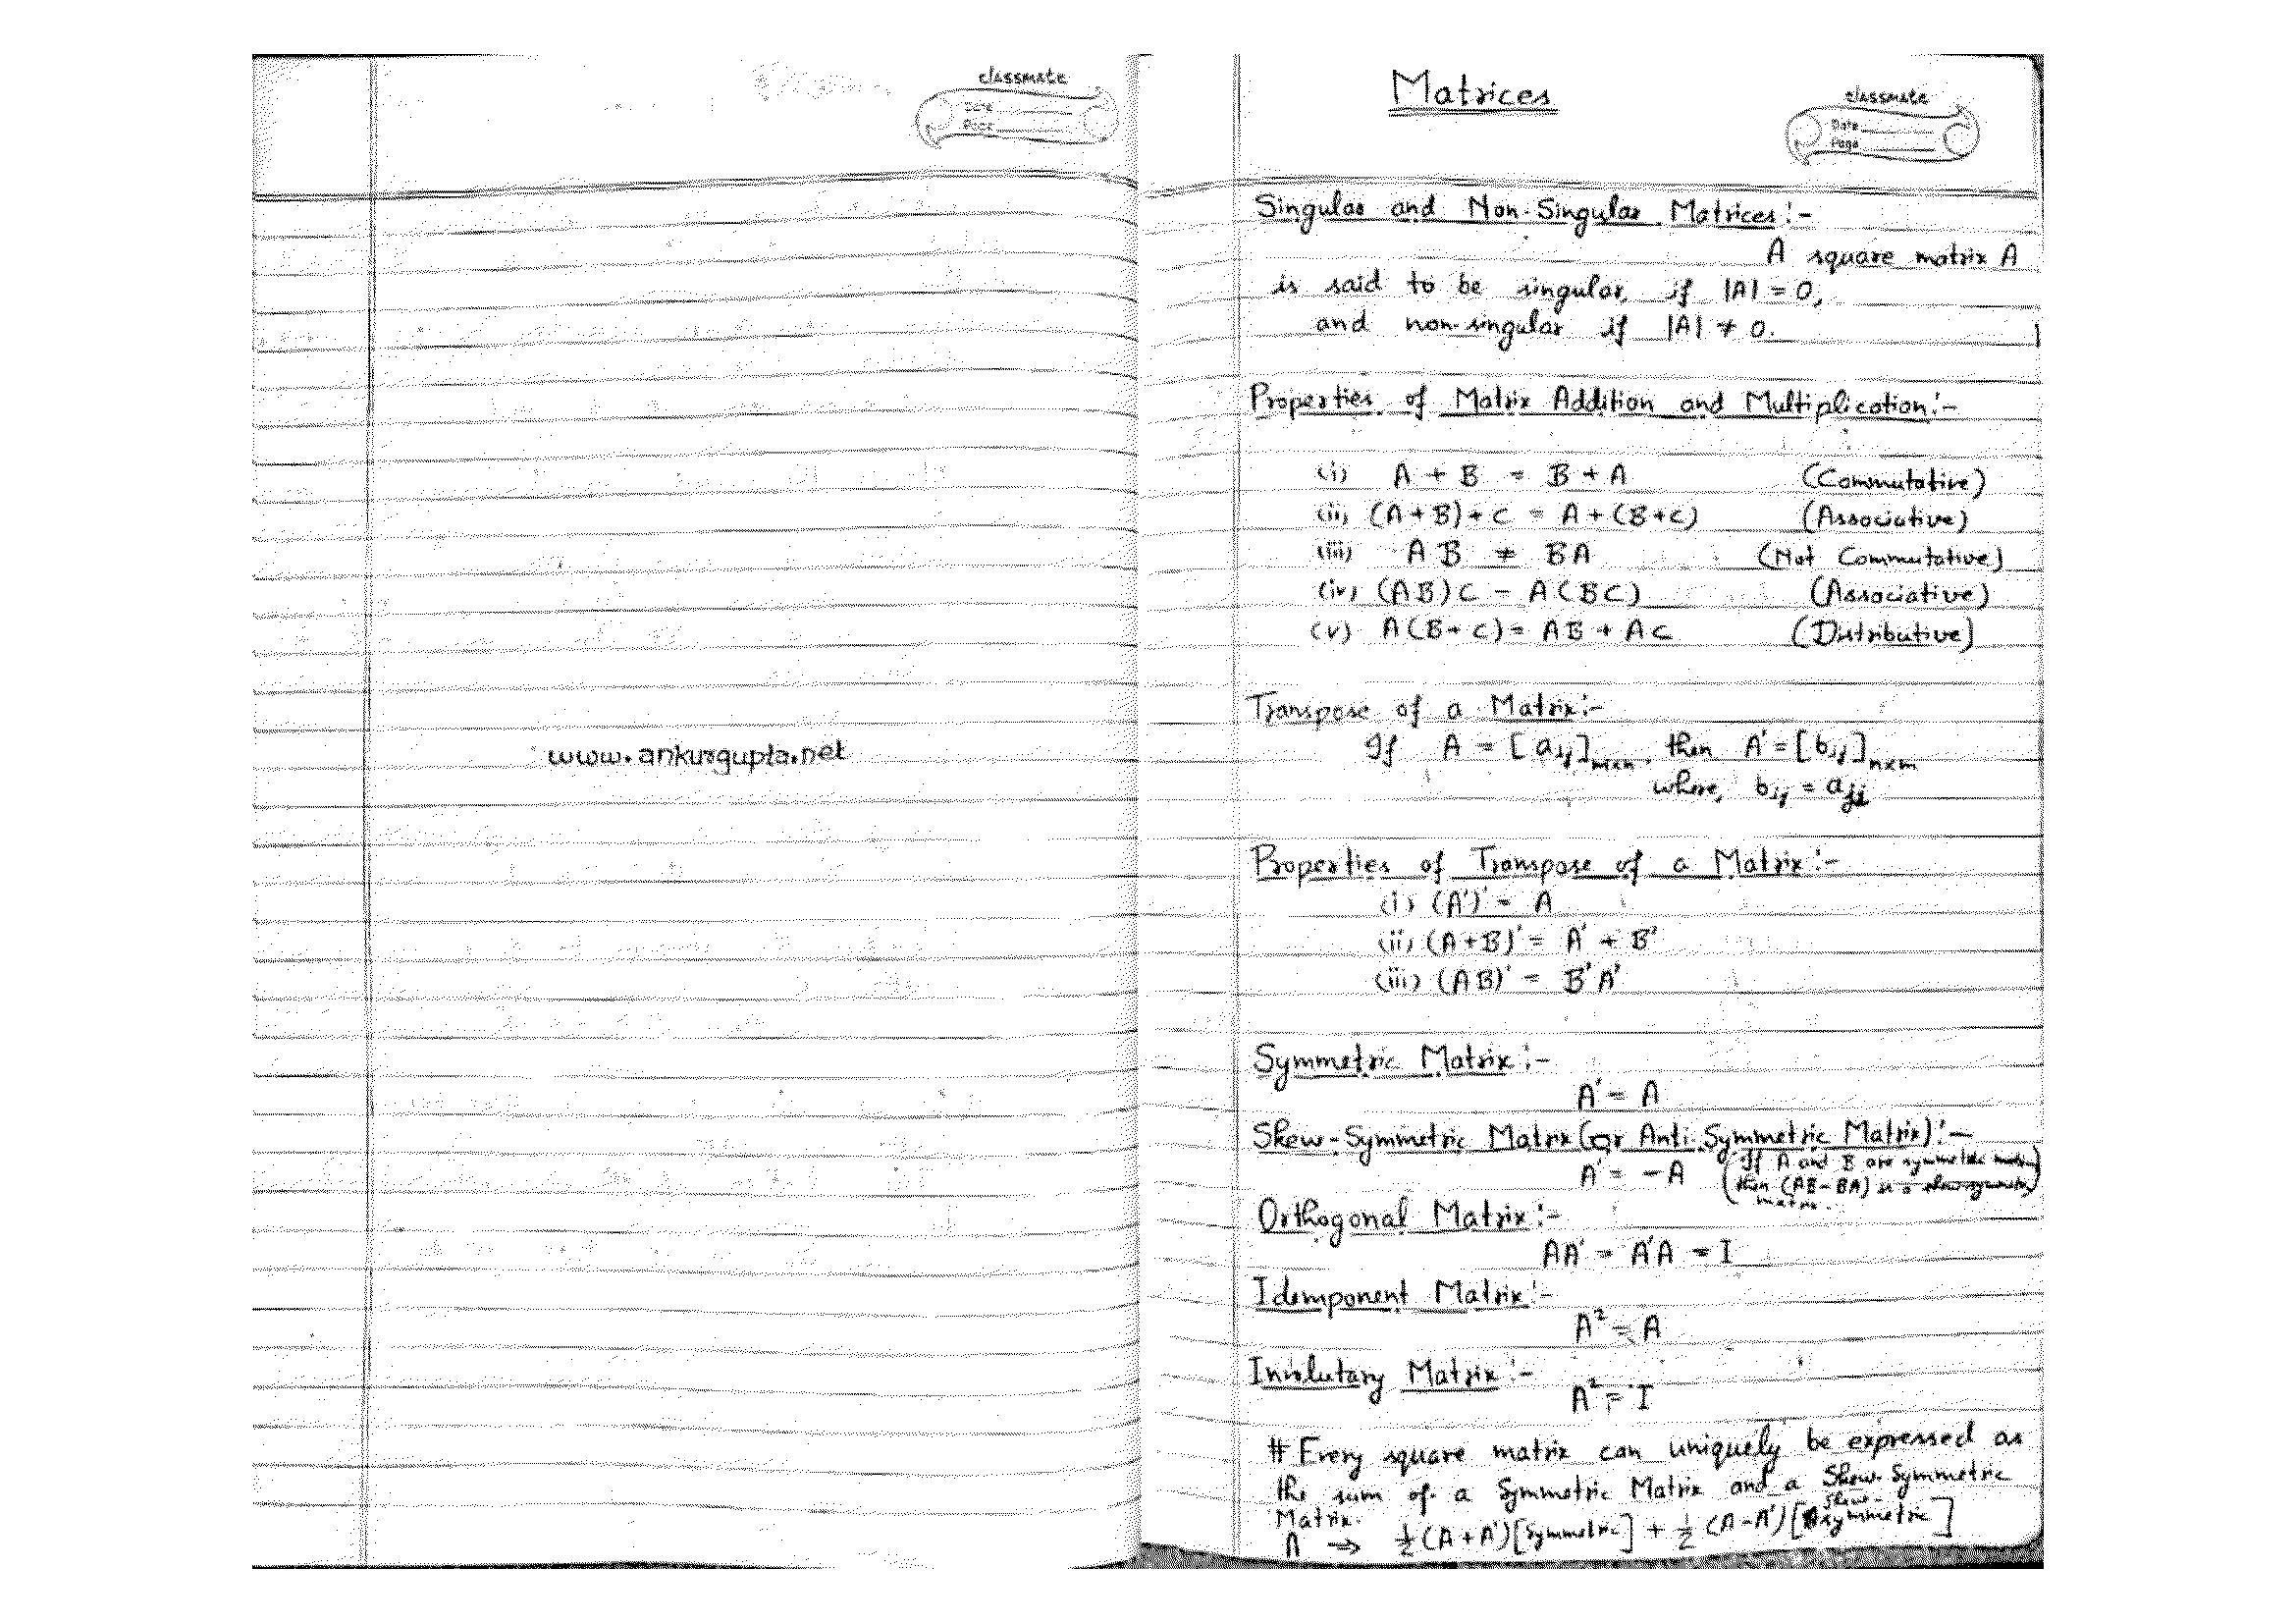 classmate
Date
Page
www.ankurgupta.net
Matrices
classmate
Date
Page
Singular and Non-Singular Matrices:-
A square matrix A
is said to be singular, if |A| = 0,
and non-singular if |A| ≠ 0.
Properties of Matrix Addition and Multiplication:-
(i) A + B = B + A (Commutative)
(ii) (A+B)+C = A+(B+C) (Associative)
(iii) AB ≠ BA (Not Commutative)
(iv) (AB)C = A(BC) (Associative)
(v) A(B+C) = AB + AC (Distributive)
Transpose of a Matrix:-
If A = [aij]mxn, then A' = [bij]nxm
where, bij = aji
Properties of Transpose of a Matrix:-
(i) (A')' = A
(ii) (A+B)' = A' + B'
(iii) (AB)' = B'A'
Symmetric Matrix:-
A' = A
Skew-Symmetric Matrix (or Anti-Symmetric Matrix):-
A' = -A (If A and B are symmetric matrix
then (AB-BA) is a skew symmetric)
matrix.
Orthogonal Matrix:-
AA' = A'A = I
Idemponent Matrix:-
A² = A
Involutary Matrix:-
A² = I
# Every square matrix can uniquely be expressed as
the sum of a Symmetric Matrix and a Skew-Symmetric
Matrix.
A → ½(A+A')[symmetric] + ½(A-A')[skew-symmetric]